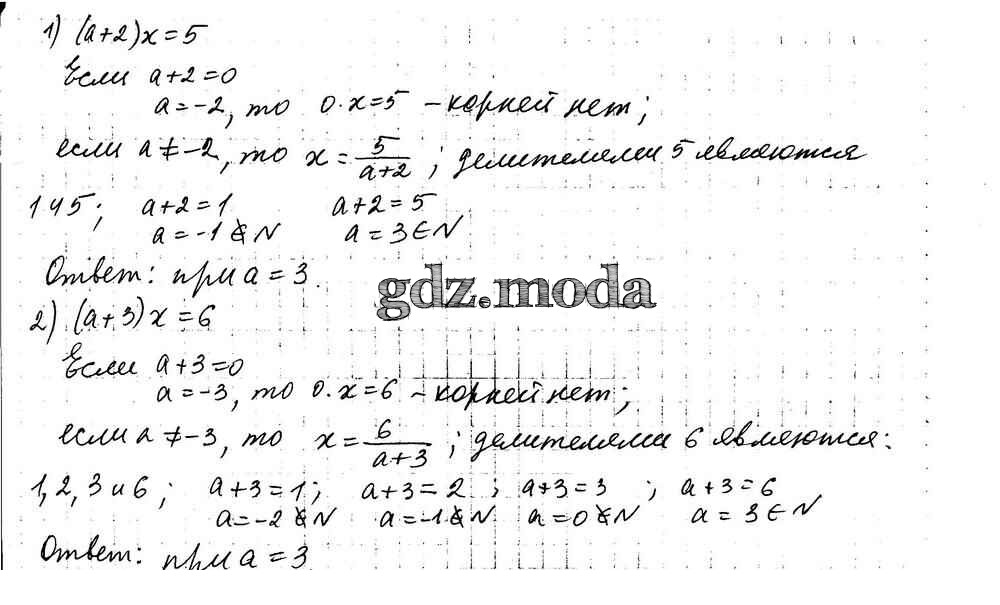 1) (a+2)x=5
Если a+2=0
a=-2, то 0·x=5 - корней нет;
если a≠-2, то x=5/(a+2); делителями 5 являются
1 и 5; a+2=1 a+2=5
a=-1∉N a=3∈N
Ответ: при a=3.
gdz.moda
2) (a+3)x=6
Если a+3=0
a=-3, то 0·x=6 - корней нет;
если a≠-3, то x=6/(a+3); делителями 6 являются:
1, 2, 3 и 6; a+3=1; a+3=2; a+3=3; a+3=6
a=-2∉N a=-1∉N a=0∉N a=3∈N
Ответ: при a=3